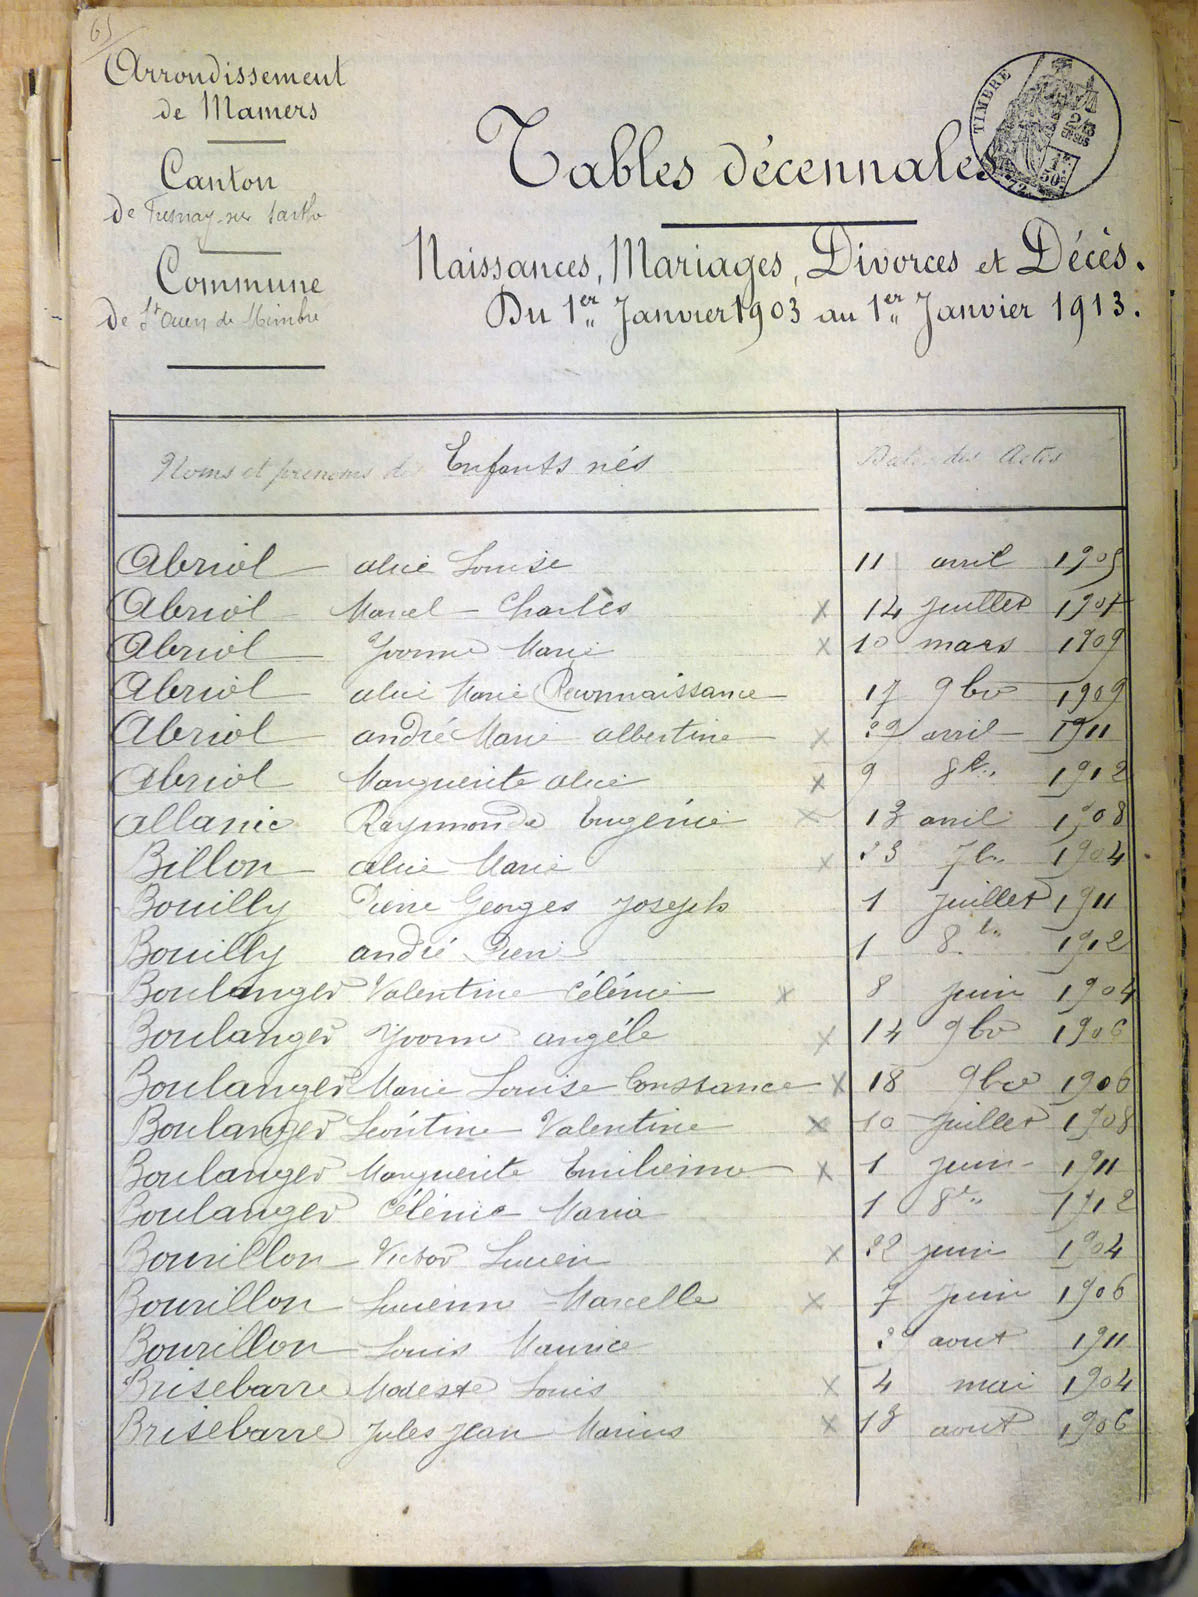 65
Arrondissement
de Mamers
Canton
de Fresnay-sur Sarthe
Commune
De St Ouen de Mimbré
TIMBRE
2/10
EN SUS
1 F
50 c
72
Tables décennales
Naissances, Mariages, Divorces et Décès.
Du 1er Janvier 1903 au 1er Janvier 1913.
Noms et prénoms des Enfants nés Dates des Actes
Abriol alice Louise 11 avril 1905
Abriol Marcel Charles x 14 juillet 1907
Abriol Yvonne Marie x 10 mars 1909
Abriol alice Marie Reconnaissance 17 9bre 1909
Abriol andré Marie albertine x 29 avril 1911
Abriol Marguerite alice x 9 8bre 1912
allanic Raymonde Eugénie x 13 avril 1908
Billon alice Marie x 23 7bre 1904
Bouilly Pierre Georges Joseph 1 juillet 1911
Bouilly andré Pierre 1 8bre 1912
Boulanger Valentine Célénie x 8 juin 1904
Boulanger Yvonne angéle x 14 9bre 1906
Boulanger Marie Louise Constance x 18 9bre 1906
Boulanger Léontine Valentine x 10 juillet 1908
Boulanger Marguerite Emilienne x 1 juin 1911
Boulanger Célénie Maria 1 8bre 1912
Bourillon Victor Lucien x 22 juin 1904
Bourillon Lucienne Marcelle x 7 juin 1906
Bourillon Louis Maurice 29 aout 1911
Brisebarre Modeste Louis x 4 mai 1904
Brisebarre Jules Jean Marius x 13 aout 1906